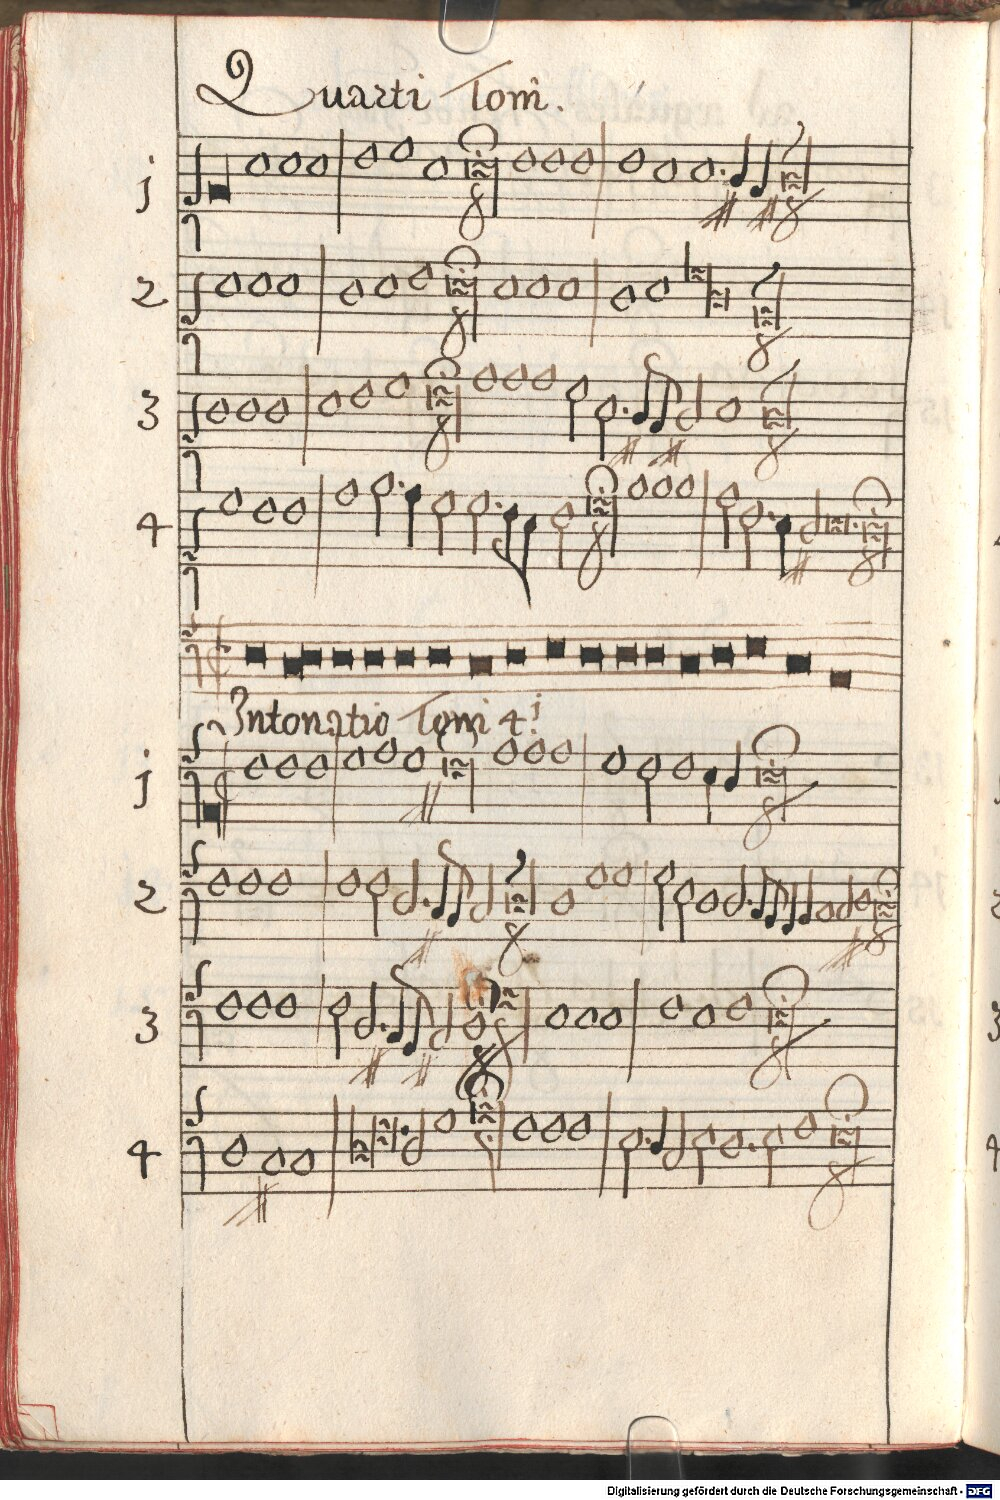 Quarti Toni.
j
2
3
4
Intonatio Toni 4j
j
2
3
4
Digitalisierung gefördert durch die Deutsche Forschungsgemeinschaft - DFG